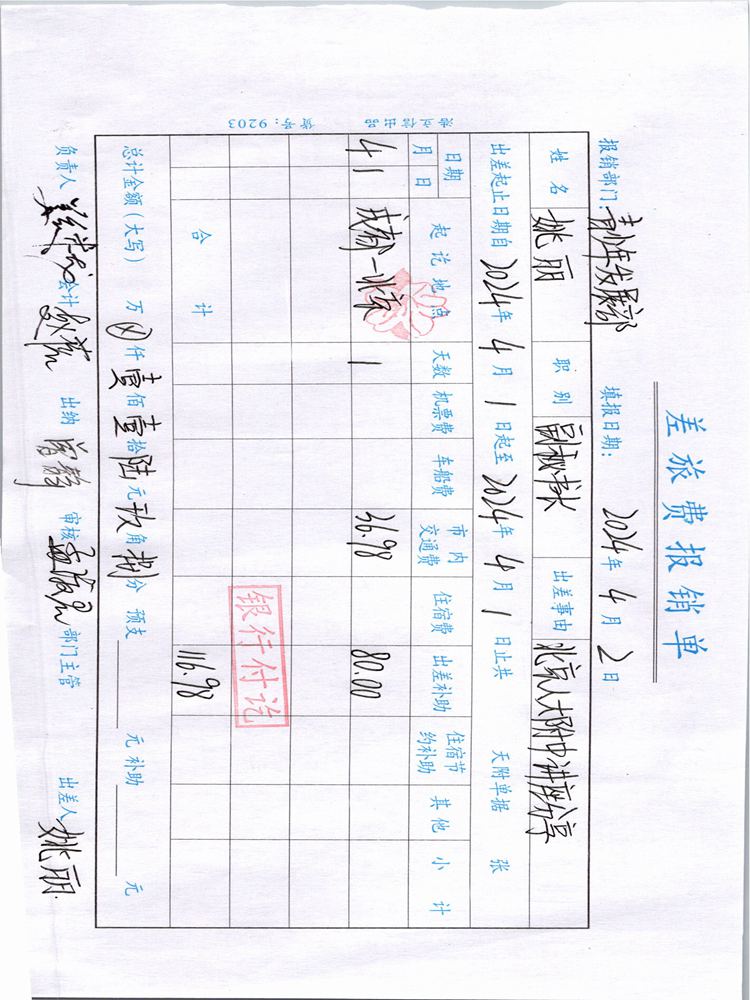 差旅费报销单
报销部门：青少年发展部 填报日期： 2024年4月2日
姓名 姚丽 职别 副秘书长 出差事由 北京人大附中讲座分享
出差起止日期自2024年4月1日起至2024年4月1日止共 天附单据 张
日期 起讫地点 天数 机票费 车船费 市内交通费 住宿费 出差补助 住宿节约补助 其他 小计
月 日
4 1 成都—北京 1 36.98 80.00
银行付讫
合计 116.98
总计金额（大写） 万 仟壹佰壹拾陆元玖角捌分 预支 元 补助 元
负责人 会计 出纳 审核 部门主管 出差人 姚丽
货号：9203